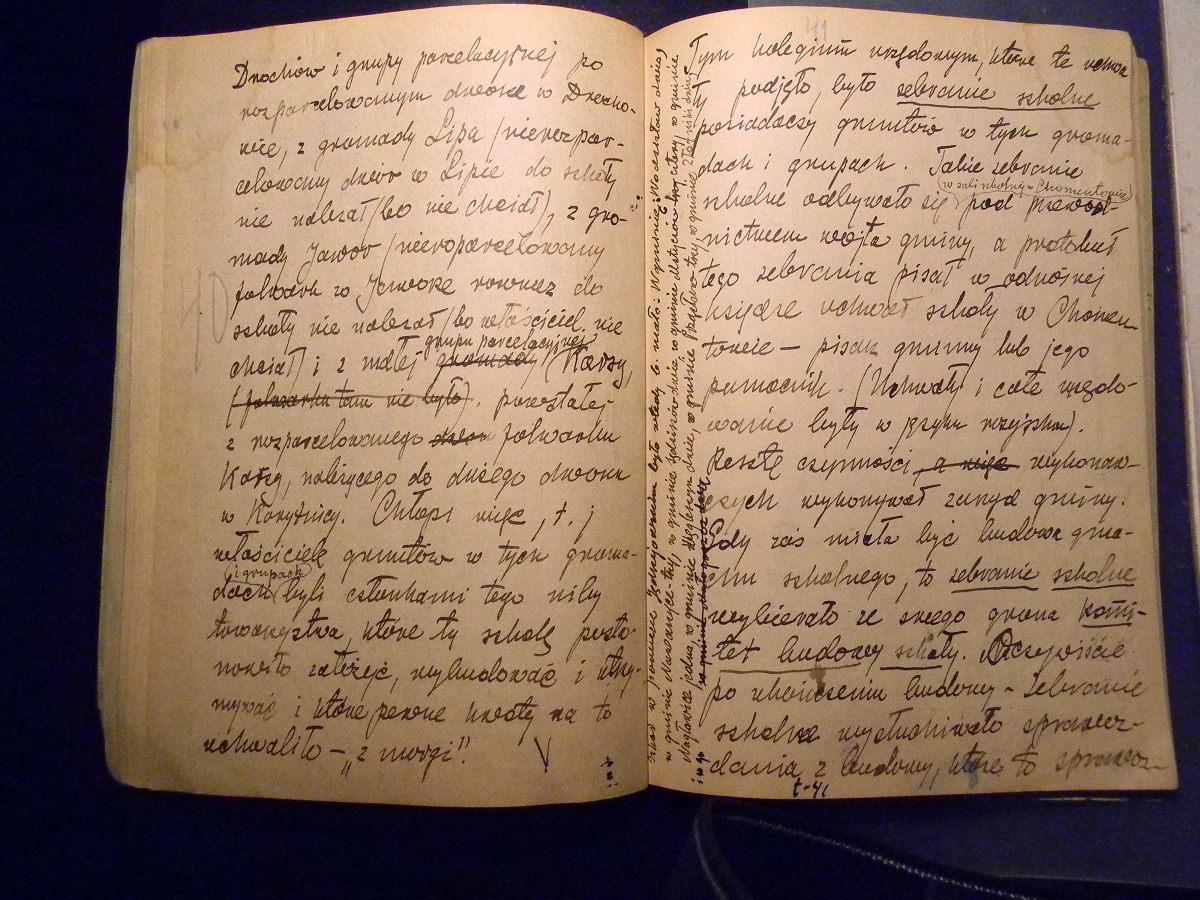 Drochów i grupy parcelacyjnej po
rozparcelowanym dworze w Drocho-
wie, z gromady Lipa /nierozpar-
celowany dwór w Lipie do szkoły
nie należał/bo nie chciał), z gro-
mady Jawor /nieroparcelowany
folwark w Jaworze również do
szkoły nie należał/bo właściciel nie
chciał/ i z małej gromady grupy parcelacyjnej (Karsy,
(folwarku tam nie było). powstałej
z rozparcelowanego dworu folwarku
Karsy, należącego do dużego dworu
w Korytnicy. Chłopi więc, t. j
właściciele gruntów w tych groma-
dach (i grupach) byli członkami tego niby
towarzystwa, które tę szkołę posta-
nowiło założyć, wybudować i utrzy-
mywać i które pewne kwoty na to
uchwaliło – „z morgi".
40
41
Tym kolegium urzędowym, które te uchwa
ły podjęło, było zebranie szkolne
posiadaczy gruntów w tych groma-
dach i grupach. Takie zebranie
(w sali szkolnej w Chomentowie)
szkolne odbywało się pod przewod-
nictwem wójta gminy, a protokuł
tego zebrania pisał w odnośnej
księdze uchwał szkoły w Chomen
towie – pisarz gminy lub jego
pomocnik. (Uchwały i całe urzędo-
wanie były w języku rosyjskim).
Resztę czynności, a więc wykonaw-
czych wykonywał zarząd gminy.
Gdy zaś miała być budowa gma-
chu szkolnego, to zebranie szkolne
wybierało ze swego grona komi-
tet budowy szkoły. Oczywiście
po ukończeniu budowy – zebranie
szkolne wysłuchiwało sprawoz-
dania z budowy, które to sprawoz-
szkół w powiecie jędrzejowskim było wtedy b. mało:
w gminie Nawarzyce – trzy, w gminie
Nagłowice jedna, w gminie